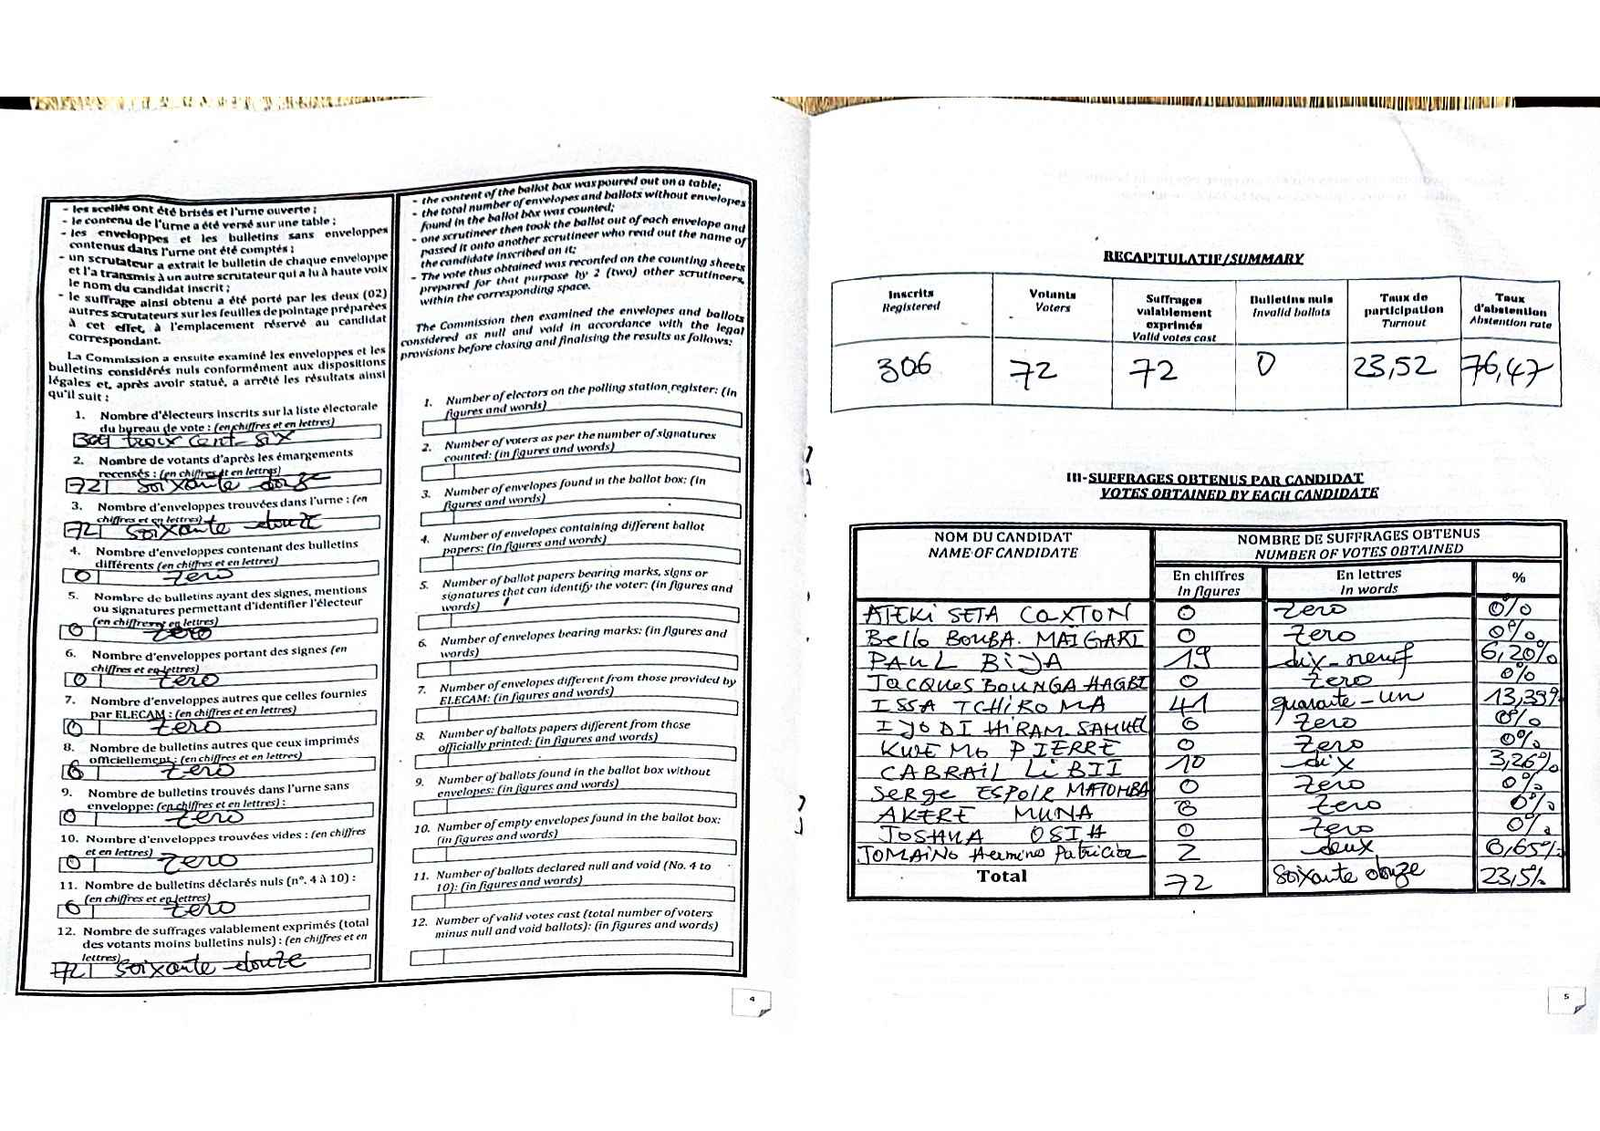 - les scellés ont été brisés et l'urne ouverte ;
- le contenu de l'urne a été versé sur une table ;
- les enveloppes et les bulletins sans enveloppes
contenus dans l'urne ont été comptés ;
- un scrutateur a extrait le bulletin de chaque enveloppe
et l'a transmis à un autre scrutateur qui a lu à haute voix
le nom du candidat inscrit ;
- le suffrage ainsi obtenu a été porté par les deux (02)
autres scrutateurs sur les feuilles de pointage préparées
à cet effet, à l'emplacement réservé au candidat
correspondant.
La Commission a ensuite examiné les enveloppes et les
bulletins considérés nuls conformément aux dispositions
légales et, après avoir statué, a arrêté les résultats ainsi
qu'il suit :
1. Nombre d'électeurs inscrits sur la liste électorale
du bureau de vote : (en chiffres et en lettres)
troix cent-six
2. Nombre de votants d'après les émargements
recensés : (en chiffres et en lettres)
72 soixante douze
3. Nombre d'enveloppes trouvées dans l'urne : (en
chiffres et en lettres)
72 soixante douze
4. Nombre d'enveloppes contenant des bulletins
différents (en chiffres et en lettres)
0 zero
5. Nombre de bulletins ayant des signes, mentions
ou signatures permettant d'identifier l'électeur
(en chiffres et en lettres)
0 zero
6. Nombre d'enveloppes portant des signes (en
chiffres et en lettres)
0 zero
7. Nombre d'enveloppes autres que celles fournies
par ELECAM : (en chiffres et en lettres)
0 zero
8. Nombre de bulletins autres que ceux imprimés
officiellement : (en chiffres et en lettres)
0 zero
9. Nombre de bulletins trouvés dans l'urne sans
enveloppe: (en chiffres et en lettres) :
0 zero
10. Nombre d'enveloppes trouvées vides : (en chiffres
et en lettres)
0 zero
11. Nombre de bulletins déclarés nuls (n°. 4 à 10) :
(en chiffres et en lettres)
0 zero
12. Nombre de suffrages valablement exprimés (total
des votants moins bulletins nuls) : (en chiffres et en
lettres)
72 soixante-douze
- the content of the ballot box was poured out on a table;
- the total number of envelopes and ballots without envelopes
found in the ballot box was counted;
- one scrutineer then took the ballot out of each envelope and
passed it onto another scrutineer who read out the name of
the candidate inscribed on it;
- The vote thus obtained was recorded on the counting sheets
prepared for that purpose by 2 (two) other scrutineers,
within the corresponding space.
The Commission then examined the envelopes and ballots
considered as null and void in accordance with the legal
provisions before closing and finalising the results as follows:
1. Number of electors on the polling station register: (in
figures and words)
2. Number of voters as per the number of signatures
counted: (in figures and words)
3. Number of envelopes found in the ballot box: (in
figures and words)
4. Number of envelopes containing different ballot
papers: (in figures and words)
5. Number of ballot papers bearing marks, signs or
signatures that can identify the voter: (in figures and
words)
6. Number of envelopes bearing marks: (in figures and
words)
7. Number of envelopes different from those provided by
ELECAM: (in figures and words)
8. Number of ballots papers different from those
officially printed: (in figures and words)
9. Number of ballots found in the ballot box without
envelopes: (in figures and words)
10. Number of empty envelopes found in the ballot box:
(in figures and words)
11. Number of ballots declared null and void (No. 4 to
10): (in figures and words)
12. Number of valid votes cast (total number of voters
minus null and void ballots): (in figures and words)
4
RECAPITULATIF/SUMMARY
Inscrits Registered Votants Voters Suffrages valablement exprimés Valid votes cast Bulletins nuls Invalid ballots Taux de participation Turnout Taux d'abstention Abstention rate
306 72 72 0 23,52 76,47
III-SUFFRAGES OBTENUS PAR CANDIDAT
VOTES OBTAINED BY EACH CANDIDATE
NOM DU CANDIDAT NOMBRE DE SUFFRAGES OBTENUS
NAME OF CANDIDATE NUMBER OF VOTES OBTAINED
En chiffres En lettres %
In figures In words
ATEKI SETA CAXTON 0 zero 0%
Bello BOUBA. MAIGARI 0 zero 0%
PAUL BIYA 19 dix-neuf 6,20%
JACQUES BOUNGA HAGBE 0 zero 0%
ISSA TCHIROMA 41 quarante-un 13,39%
IYODI HIRAM. SAMUEL 0 zero 0%
KWEMO PIERRE 0 zero 0%
CABRAIL LIBII 10 dix 3,26%
SERGE ESPOIR MATOMBA 0 zero 0%
AKERE MUNA 0 zero 0%
JOSHUA OSIH 0 zero 0%
TOMAINO Hermine Patricia 2 deux 0,65%
Total 72 soixante douze 23,5%
5